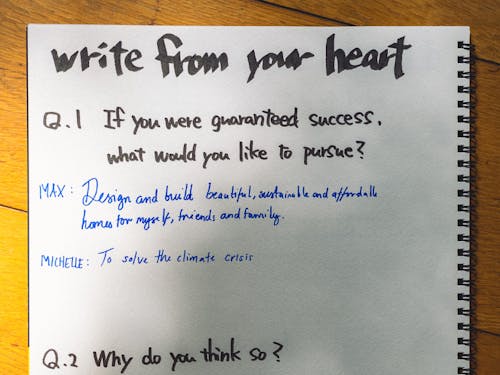 write from your heart
Q.1 If you were guaranteed success,
what would you like to pursue?
MAX: Design and build beautiful, sustainable and affordable
homes for myself, friends and family.
MICHELLE: To solve the climate crisis
Q.2 Why do you think so?